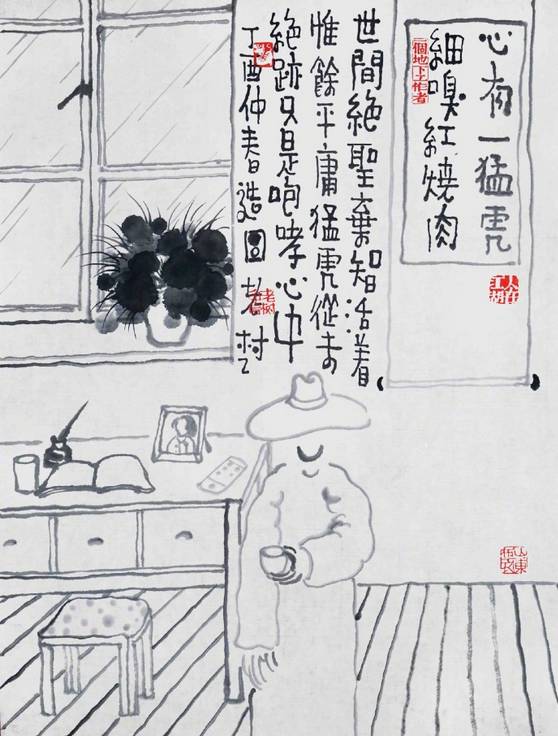 心有一猛虎
細嗅紅燒肉
一個地下工作者
人在江湖
世間絕聖棄智活着
惟餘平庸猛虎從未
絕跡只是咆哮心中
丁酉仲春造圖老树